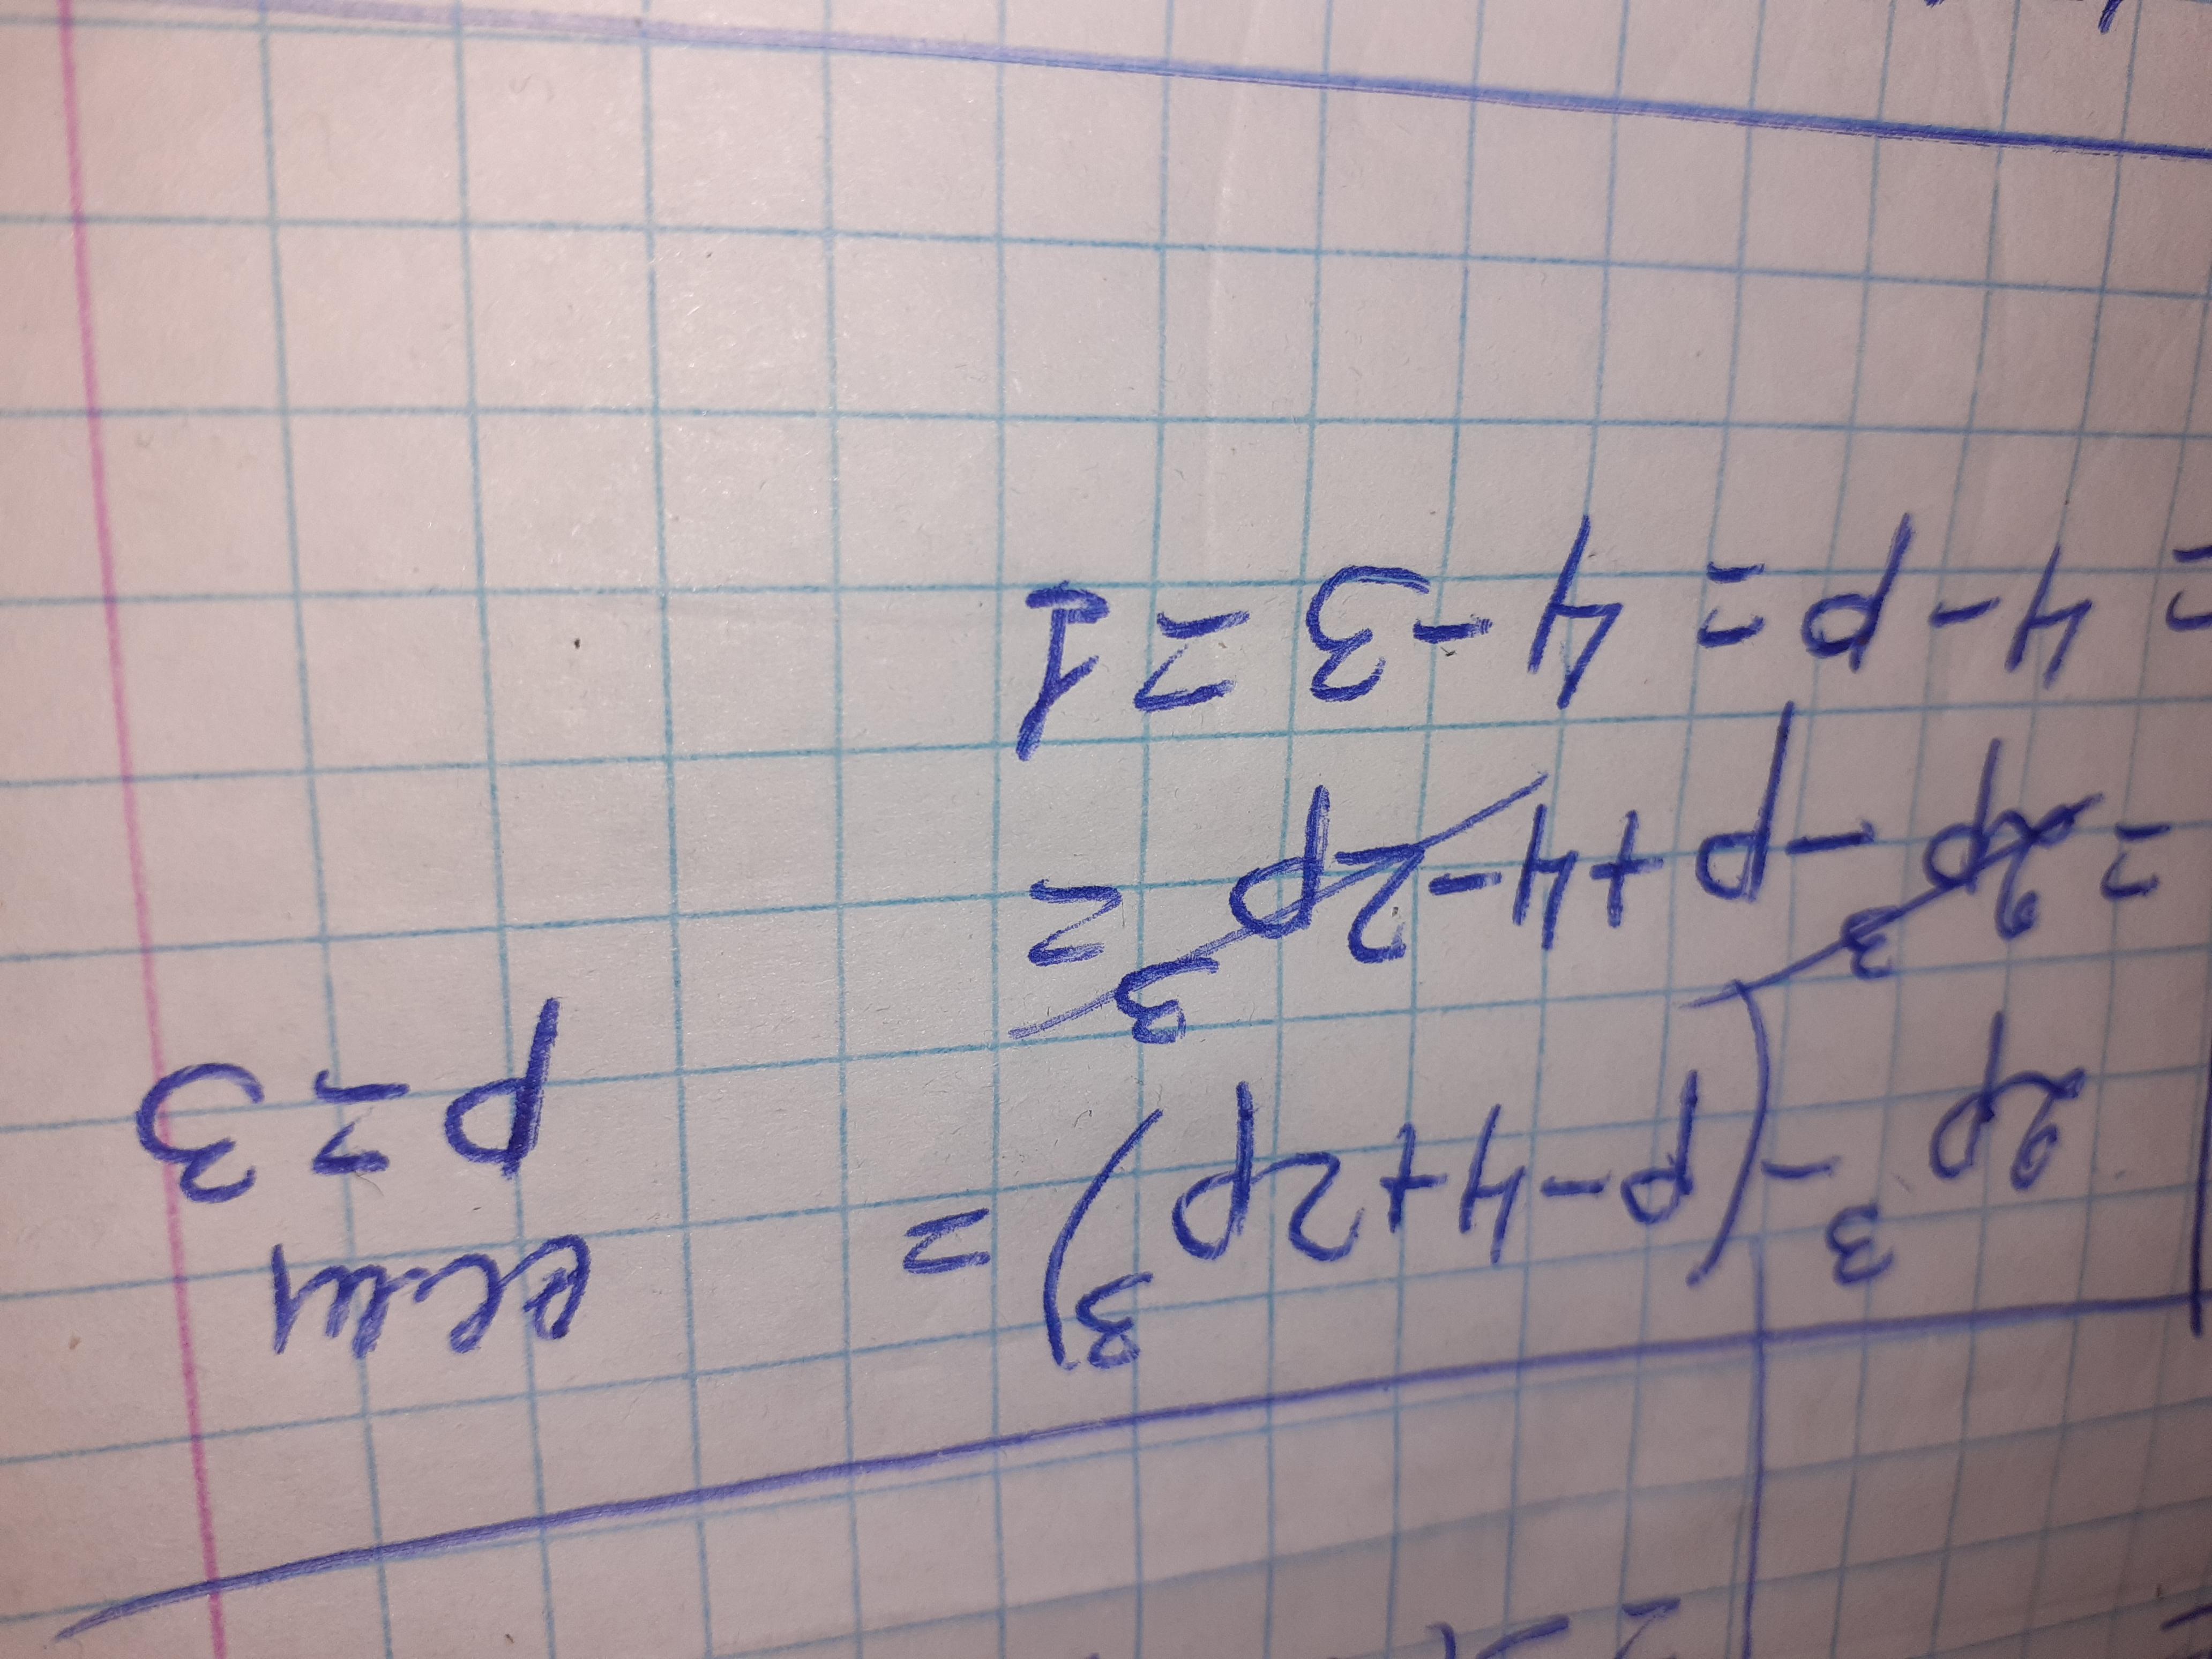 2p³ - (p - 4 + 2p³) = если
p = 3
= 2p³ - p + 4 - 2p³ =
= 4 - p = 4 - 3 = 1